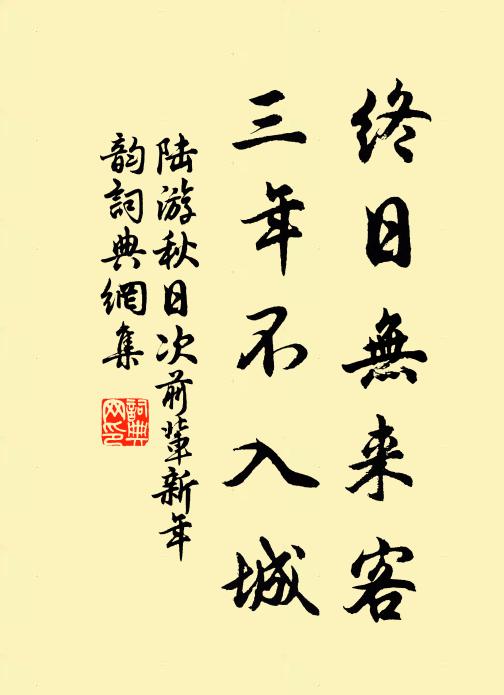 終日無来客
三年不入城
陆游秋日次前輩新年
韵詞典網集
詞典
网印